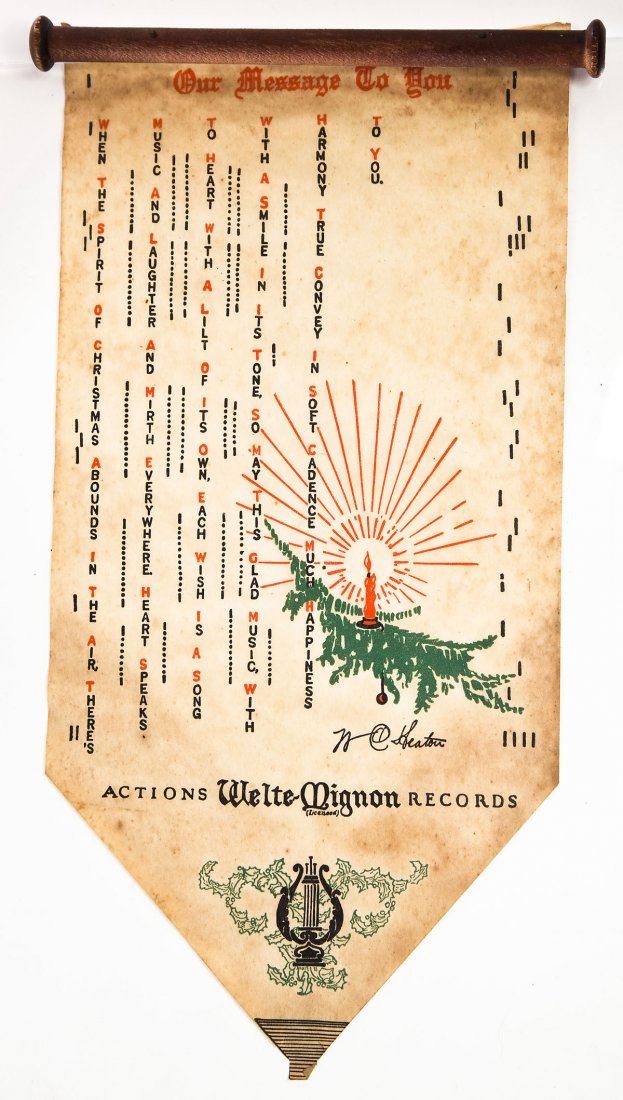 Our Message To You
WHEN THE SPIRIT OF CHRISTMAS ABOUNDS IN THE AIR, THERE'S
MUSIC AND LAUGHTER AND MIRTH EVERYWHERE. HEART SPEAKS
TO HEART WITH A LILT OF ITS OWN, EACH WISH IS A SONG
WITH A SMILE IN ITS TONE, SO MAY THIS GLAD MUSIC, WITH
HARMONY TRUE CONVEY IN SOFT CADENCE MUCH HAPPINESS
TO YOU.
W C Heaton
ACTIONS Welte-Mignon RECORDS
(Licensed)